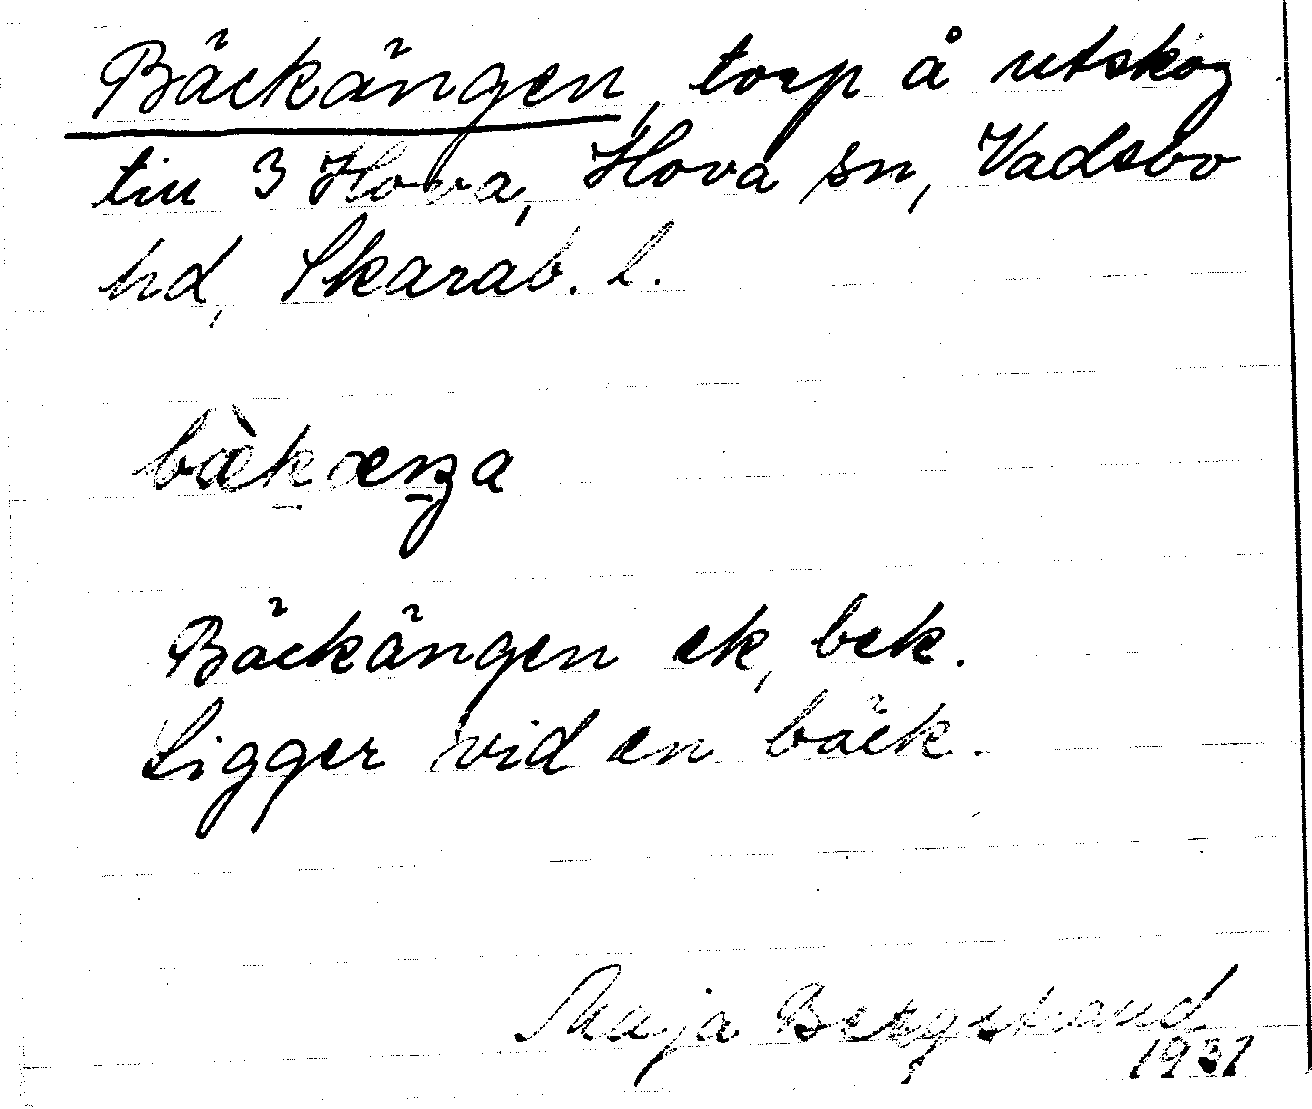 Bäckängen, torp å utskog
till 3 Hova, Hova sn, Vadsbo
hd, Skarab. l.
bæ̀kæŋa
Bäckängen ek, bek.
Ligger vid en bäck.
Maja Bergstrand
1931